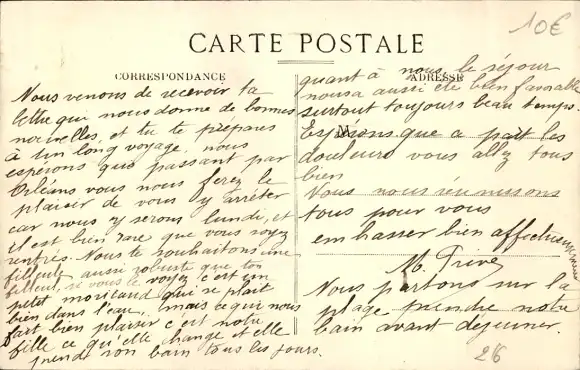 10€
CARTE POSTALE
CORRESPONDANCE
ADRESSE
Nous venons de recevoir ta
lettre qui nous donne de bonnes
nouvelles, et tu te prépares
à un long voyage, nous
espérons que passant par
Orléans vous nous ferez le
plaisir de vous y arrêter
car nous y serons lundi, et
il est bien rare que vous soyez
rentrés. Nous te souhaitons une
filleule aussi robuste que ton
filleul, si vous le voyez c'est un
petit moricaud qui se plait
bien dans l'eau, mais ce qui nous
fait bien plaisir c'est notre
fille ce qu'elle change et elle
prend son bain tous les jours.
quant à nous le séjour
nous a aussi été bien favorable
surtout toujours beau temps.
M
Espérons que a part les
douleurs vous allez tous
bien
Nous nous réunissons
tous pour vous
embrasser bien affectueusement
M. Privé
Nous partons sur la
plage prendre notre
bain avant dejeuner.
26